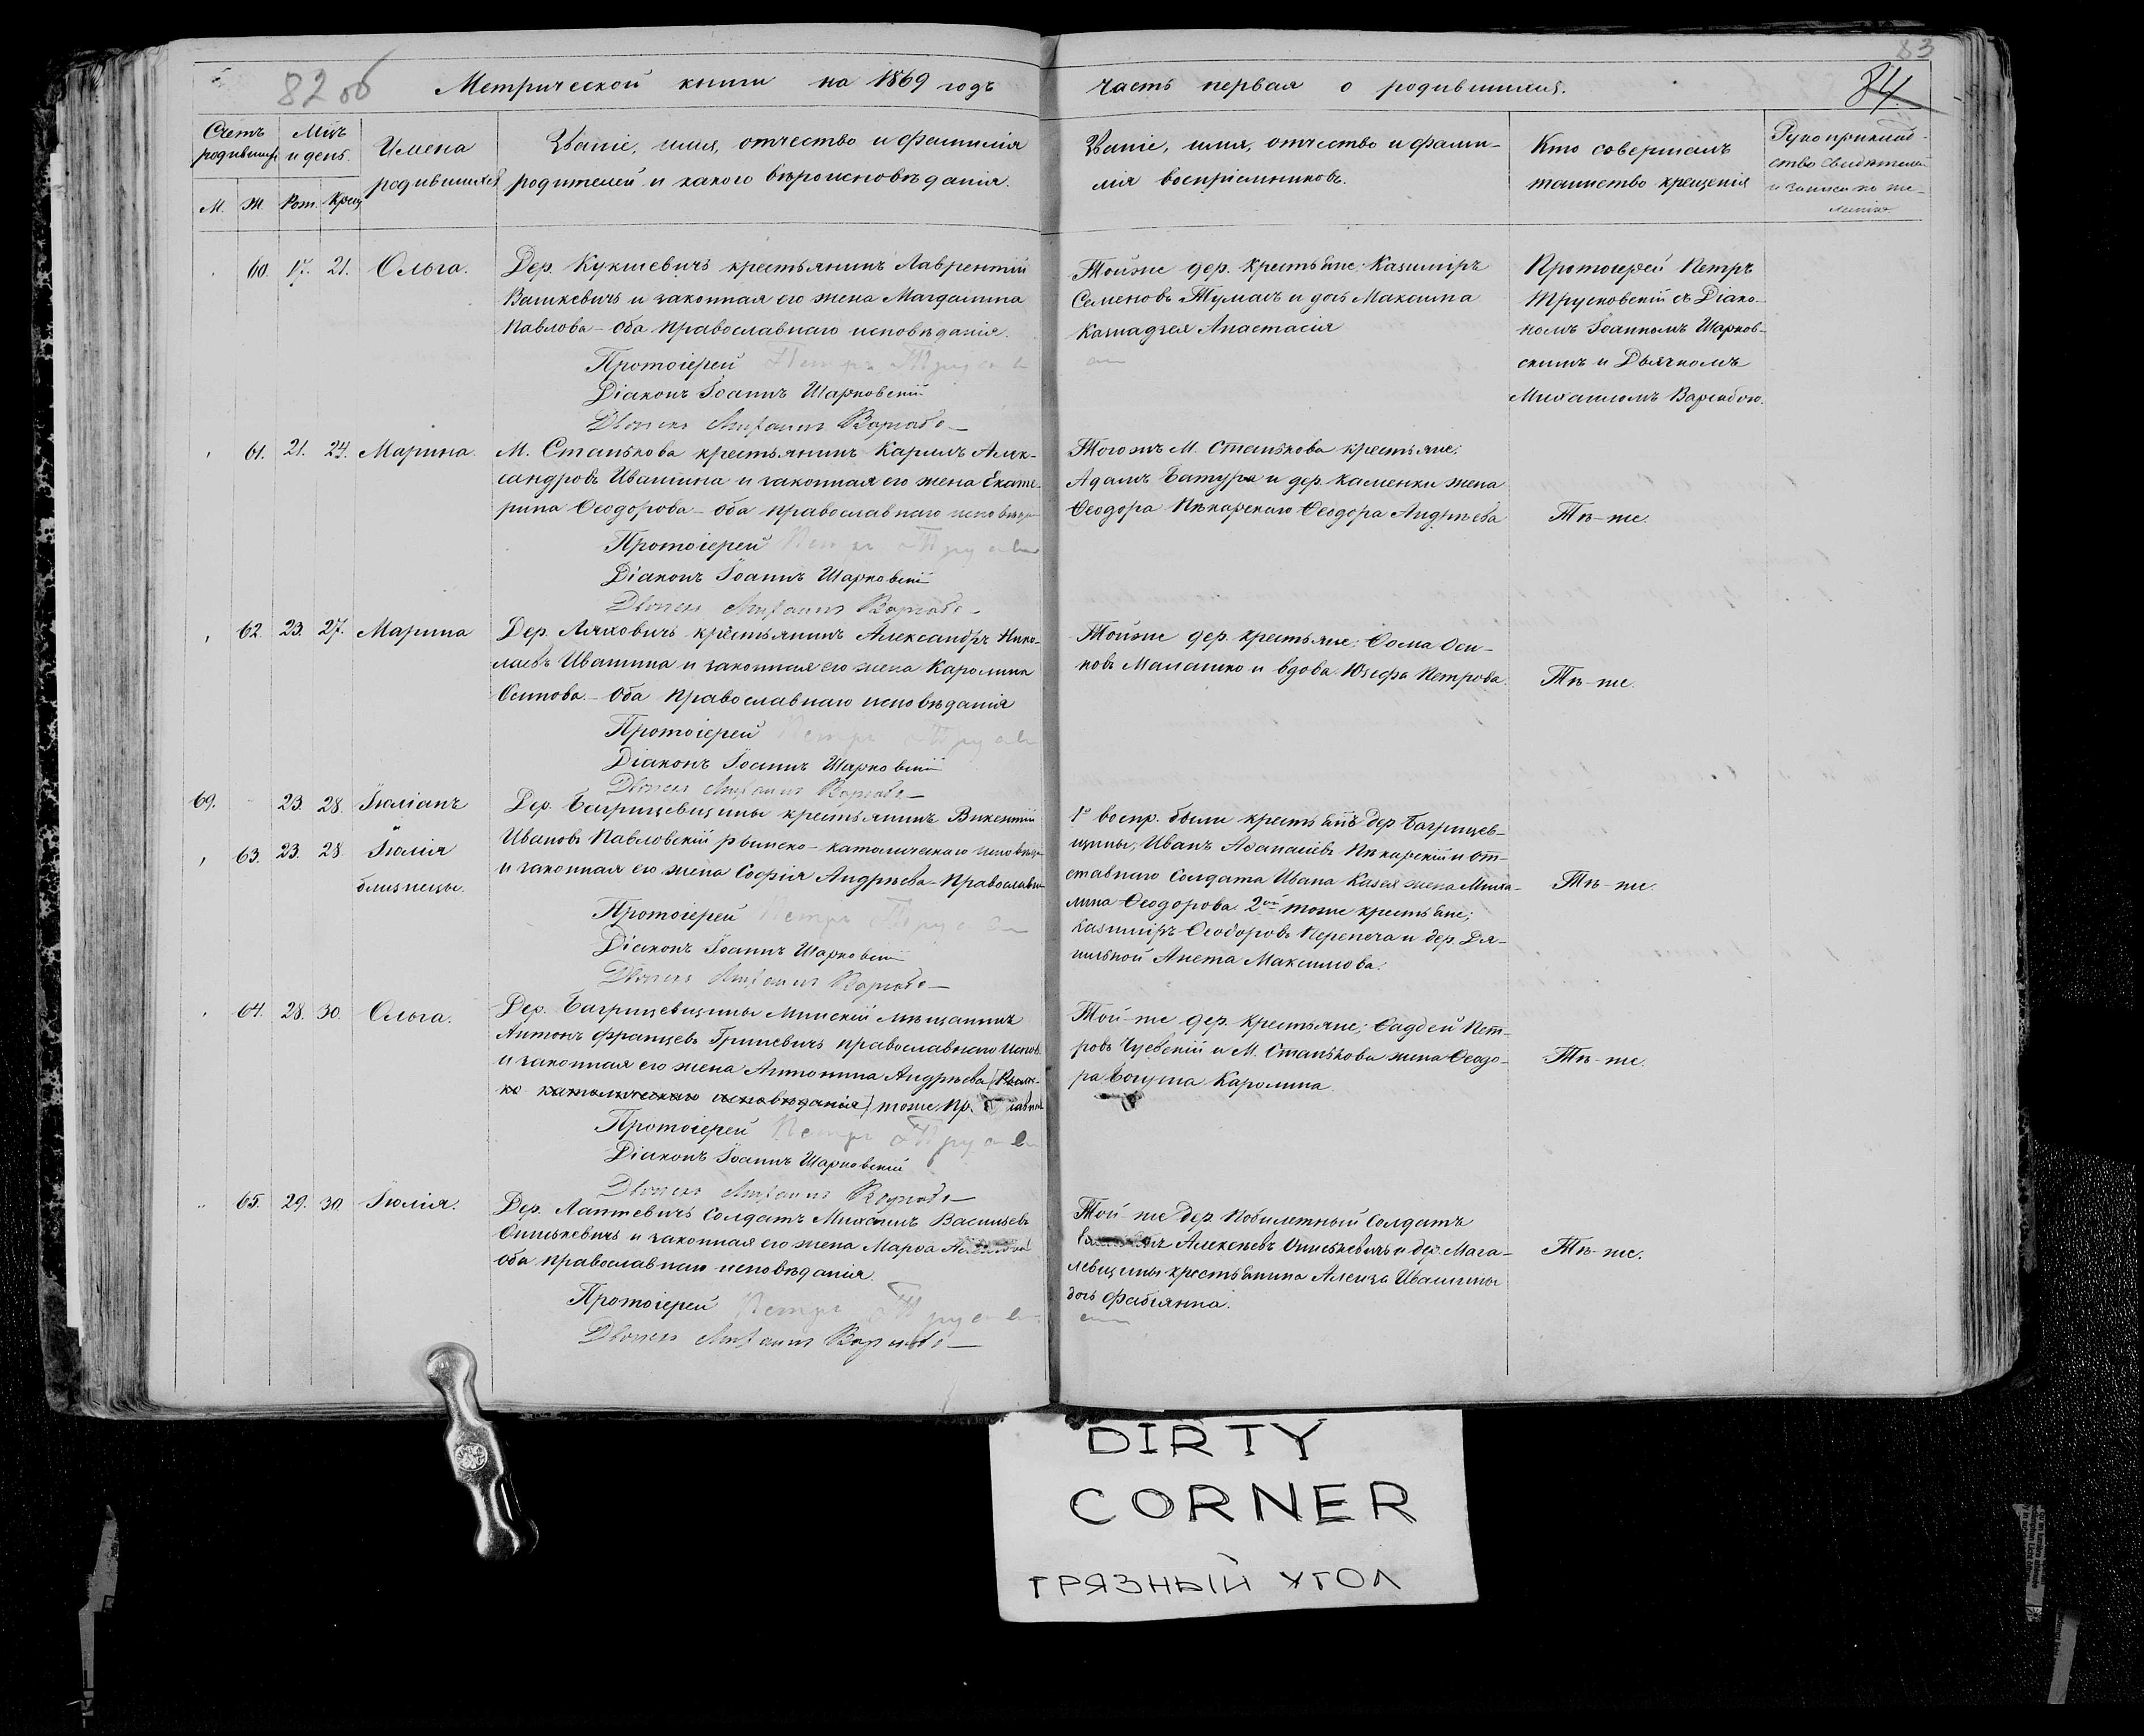 82 об
83
84
Метрической книги на 1869 годъ
часть первая о родившихся.
Счетъ родившихся
М. Ж.
Мцъ и день.
Рож. Крещ.
Имена родившихся
Званіе, имя, отчество и фамилія
родителей и какого вѣроисповѣданія.
Званіе, имя, отчество и фами-
лія воспріемниковъ.
Кто совершалъ
таинство крещенія
Рукоприклад-
ство свидѣтелей
60. 17. 21. Ольга.
Дер. Кукшевичъ крестьянинъ Лаврентій
Вашкевичъ и законная его жена Магдалина
Павлова – оба православнаго исповѣданія.
Протоіерей Петръ
Діаконъ Іоаннъ Шарковскій
Тойже дер. крестьяне: Казиміръ
Семеновъ Тумаль и дочь Максима
Казнадзея Анастасія
Протоіерей Петръ
Трусковскій съ Діако-
номъ Іоанномъ Шарков-
скимъ и Дьячкомъ
Михаиломъ
61. 21. 24. Марина.
М. Станькова крестьянинъ Карпъ Алек-
сандровъ Ивашина и законная его жена Екате-
рина Ѳеодорова – оба православнаго исповѣд
Протоіерей Петръ
Діаконъ Іоаннъ Шарковскій
Тогожъ М. Станькова крестьяне:
Адамъ Батура и дер. Каменки жена
Ѳеодора Пѣкарскаго Ѳеодора Андрѣева
Тѣ-же.
62. 23. 27. Марина
Дер. Ляховичъ крестьянинъ Александръ Нико-
лаевъ Ивашина и законная его жена Каролина
Осипова. – Оба православнаго исповѣданія
Протоіерей Петръ
Діаконъ Іоаннъ Шарковскій
Тойже дер. крестьяне: Ѳома Оси-
повъ Малашко и вдова Юзефа Петрова.
Тѣ-же.
69. 23. 28. Іюліанъ
63. 23. 28. Іюлія
близнецы.
Дер. Багрицевщины крестьянинъ Викентій
Ивановъ Павловскій римско-католическаго исповѣд
и законная его жена Софія Андрѣева – Православн
Протоіерей Петръ
Діаконъ Іоаннъ Шарковскій
1º воспр. были крестьяне дер. Багрицев-
щины, Иванъ Аѳанасіевъ Пѣкарскій и от-
ставнаго Солдата Ивана Казея жена Миха-
лина Ѳеодорова. 2ой тоже крестьяне;
Казиміръ Ѳеодоровъ Перепеча и дер. Дя-
гильной Анета Максимова.
Тѣ-же.
64. 28. 30. Ольга.
Дер. Багрицевщины Минскій мѣщанинъ
Антонъ Францевъ Гриневичъ православнаго испов.
и законная его жена Антонина Андрѣева (Римс-
ко католическаго исповѣданія) тоже
Протоіерей Петръ
Діаконъ Іоаннъ Шарковскій
Той-же дер. крестьяне; Ѳаддей Пет-
ровъ и М. Станькова жена Ѳеодо-
ра Богуша Каролина.
Тѣ-же.
65. 29. 30 Іюлія.
Дер. Лаптевичъ Солдатъ Михаилъ Васильевъ
Синькевичъ и законная его жена Марѳа
оба православнаго исповѣданія.
Протоіерей Петръ
Той-же дер. Побилетный Солдатъ
Алексѣевъ Синькевичъ и дер. Мага-
левщины крестьянина Ивашины
дочь Фабіянна.
Тѣ-же.
DIRTY
CORNER
ГРЯЗНЫЙ УГОЛ